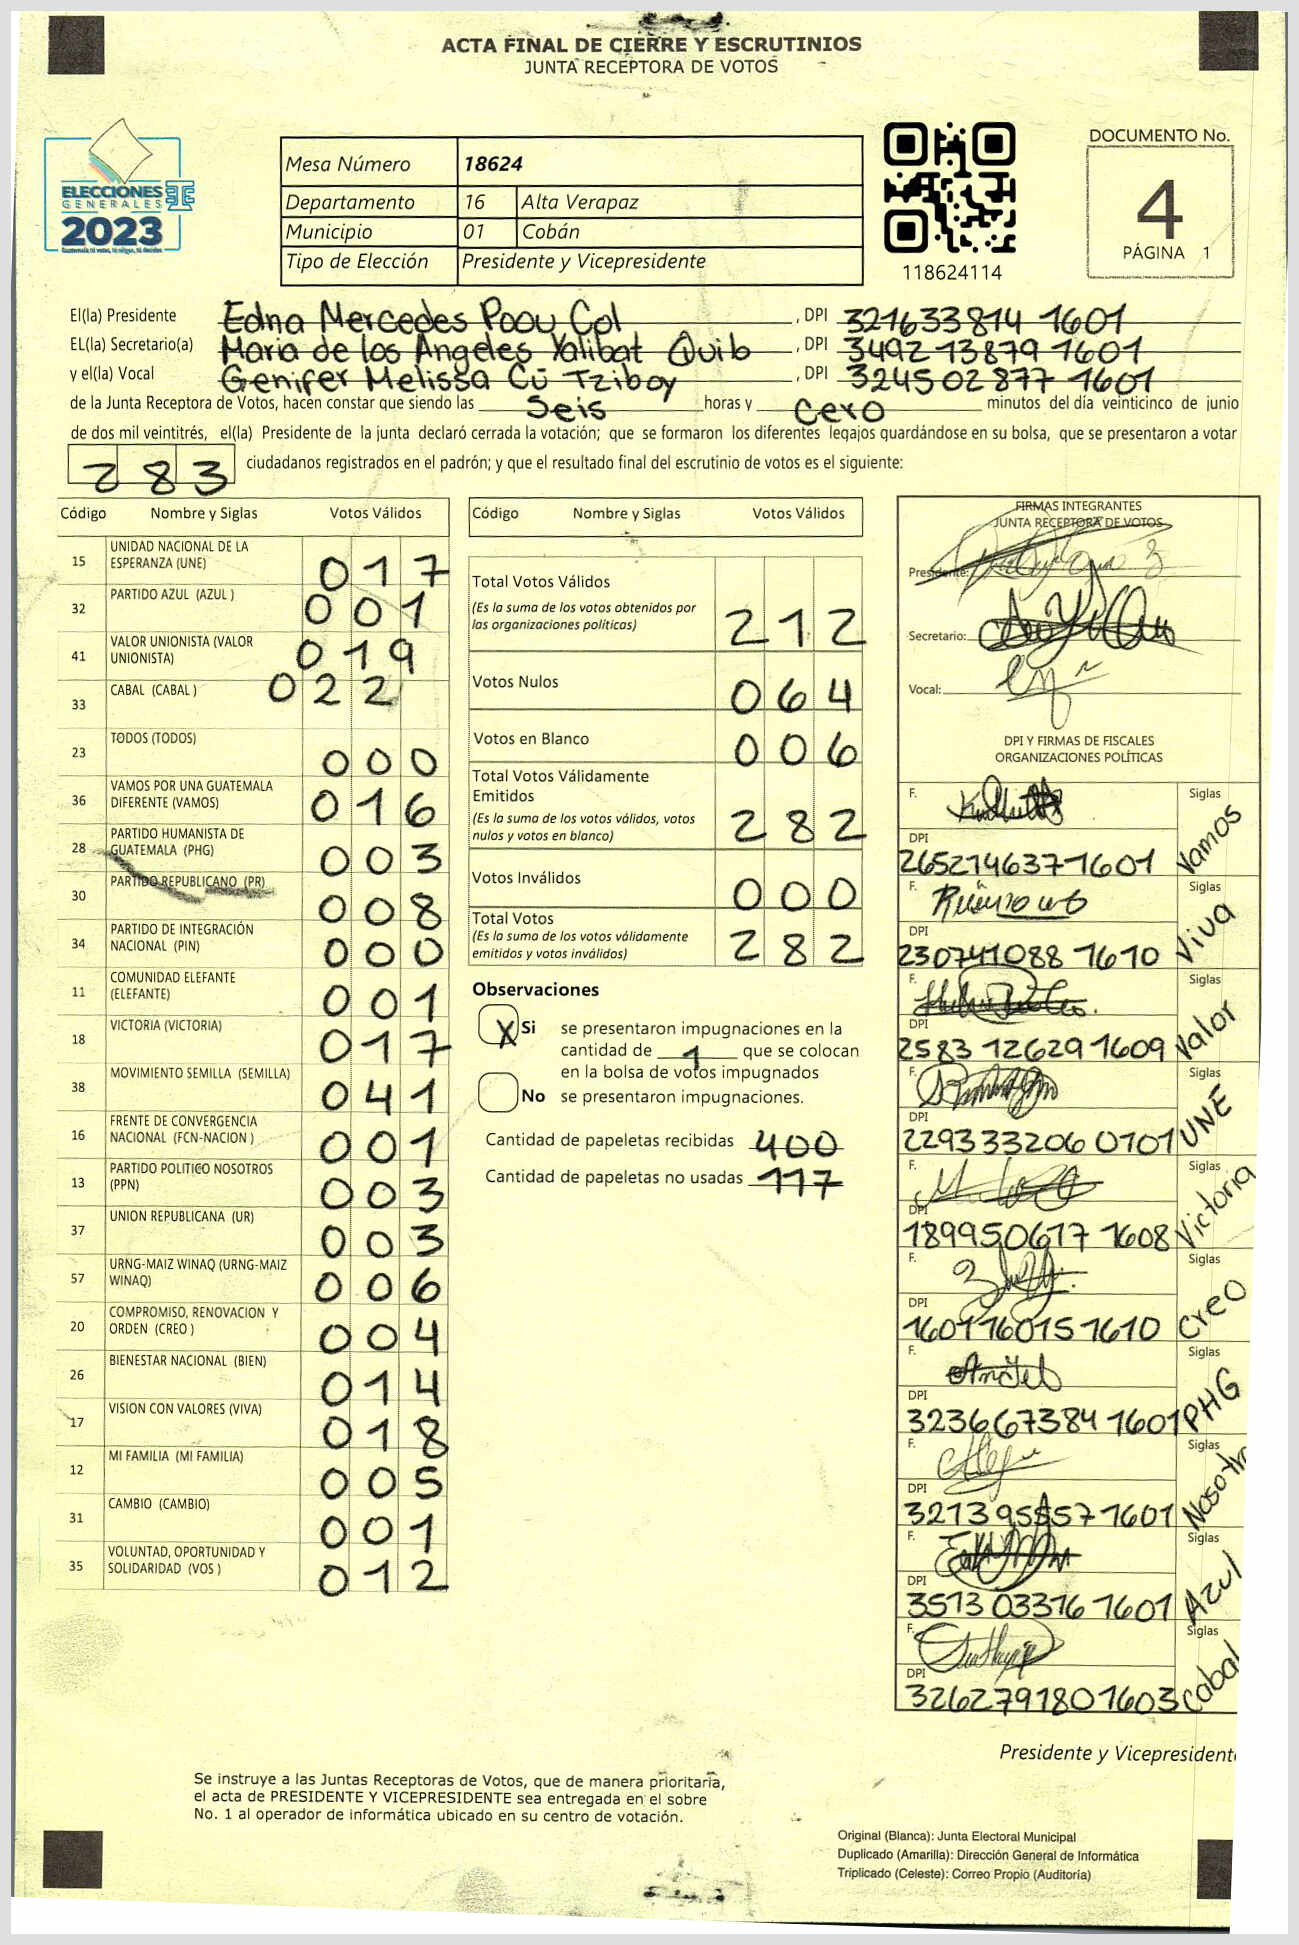 ACTA FINAL DE CIERRE Y ESCRUTINIOS
JUNTA RECEPTORA DE VOTOS
ELECCIONES
GENERALES
2023
Mesa Número 18624
Departamento 16 Alta Verapaz
Municipio 01 Cobán
Tipo de Elección Presidente y Vicepresidente
118624114
DOCUMENTO No.
4
PÁGINA 1
El(la) Presidente Edna Mercedes Poou Col, DPI 321633814 1601
EL(la) Secretario(a) Maria de los Angeles Yalibat Quib, DPI 3492 13879 1601
y el(la) Vocal Genifer Melissa Cú Tziboy, DPI 324502877 1601
de la Junta Receptora de Votos, hacen constar que siendo las Seis horas y cero minutos del día veinticinco de junio
de dos mil veintitrés, el(la) Presidente de la junta declaró cerrada la votación; que se formaron los diferentes legajos guardándose en su bolsa, que se presentaron a votar
283 ciudadanos registrados en el padrón; y que el resultado final del escrutinio de votos es el siguiente:
Código Nombre y Siglas Votos Válidos
15 UNIDAD NACIONAL DE LA ESPERANZA (UNE) 017
32 PARTIDO AZUL (AZUL ) 001
41 VALOR UNIONISTA (VALOR UNIONISTA) 019
33 CABAL (CABAL ) 022
23 TODOS (TODOS) 000
36 VAMOS POR UNA GUATEMALA DIFERENTE (VAMOS) 016
28 PARTIDO HUMANISTA DE GUATEMALA (PHG) 003
30 PARTIDO REPUBLICANO (PR) 008
34 PARTIDO DE INTEGRACIÓN NACIONAL (PIN) 000
11 COMUNIDAD ELEFANTE (ELEFANTE) 001
18 VICTORIA (VICTORIA) 017
38 MOVIMIENTO SEMILLA (SEMILLA) 041
16 FRENTE DE CONVERGENCIA NACIONAL (FCN-NACION ) 001
13 PARTIDO POLITICO NOSOTROS (PPN) 003
37 UNION REPUBLICANA (UR) 003
57 URNG-MAIZ WINAQ (URNG-MAIZ WINAQ) 006
20 COMPROMISO, RENOVACION Y ORDEN (CREO ) 004
26 BIENESTAR NACIONAL (BIEN) 014
17 VISION CON VALORES (VIVA) 018
12 MI FAMILIA (MI FAMILIA) 005
31 CAMBIO (CAMBIO) 001
35 VOLUNTAD, OPORTUNIDAD Y SOLIDARIDAD (VOS ) 012
Código Nombre y Siglas Votos Válidos
Total Votos Válidos
(Es la suma de los votos obtenidos por las organizaciones políticas) 212
Votos Nulos 064
Votos en Blanco 006
Total Votos Válidamente Emitidos
(Es la suma de los votos válidos, votos nulos y votos en blanco) 282
Votos Inválidos 000
Total Votos
(Es la suma de los votos válidamente emitidos y votos inválidos) 282
Observaciones
X Si se presentaron impugnaciones en la
cantidad de 1 que se colocan
en la bolsa de votos impugnados
No se presentaron impugnaciones.
Cantidad de papeletas recibidas 400
Cantidad de papeletas no usadas 117
FIRMAS INTEGRANTES
JUNTA RECEPTORA DE VOTOS
Presidente:
Secretario:
Vocal:
DPI Y FIRMAS DE FISCALES
ORGANIZACIONES POLÍTICAS
F. Siglas
DPI
265214637 1601 Vamos
F. Siglas
DPI
230741088 1610 Viva
F. Siglas
DPI
2583 12629 1609 Valor
F. Siglas
DPI
229333206 0101 UNE
F. Siglas
DPI
189950617 1608 Victoria
F. Siglas
DPI
160116015 1610 Creo
F. Siglas
DPI
323667384 1601 PHG
F. Siglas
DPI
321395557 1601
F. Siglas
DPI
3513 03316 1601 Azul
F. Siglas
DPI
326279180 1603 Cabal
Presidente y Vicepresident
Se instruye a las Juntas Receptoras de Votos, que de manera prioritaria,
el acta de PRESIDENTE Y VICEPRESIDENTE sea entregada en el sobre
No. 1 al operador de informática ubicado en su centro de votación.
Original (Blanca): Junta Electoral Municipal
Duplicado (Amarilla): Dirección General de Informática
Triplicado (Celeste): Correo Propio (Auditoría)